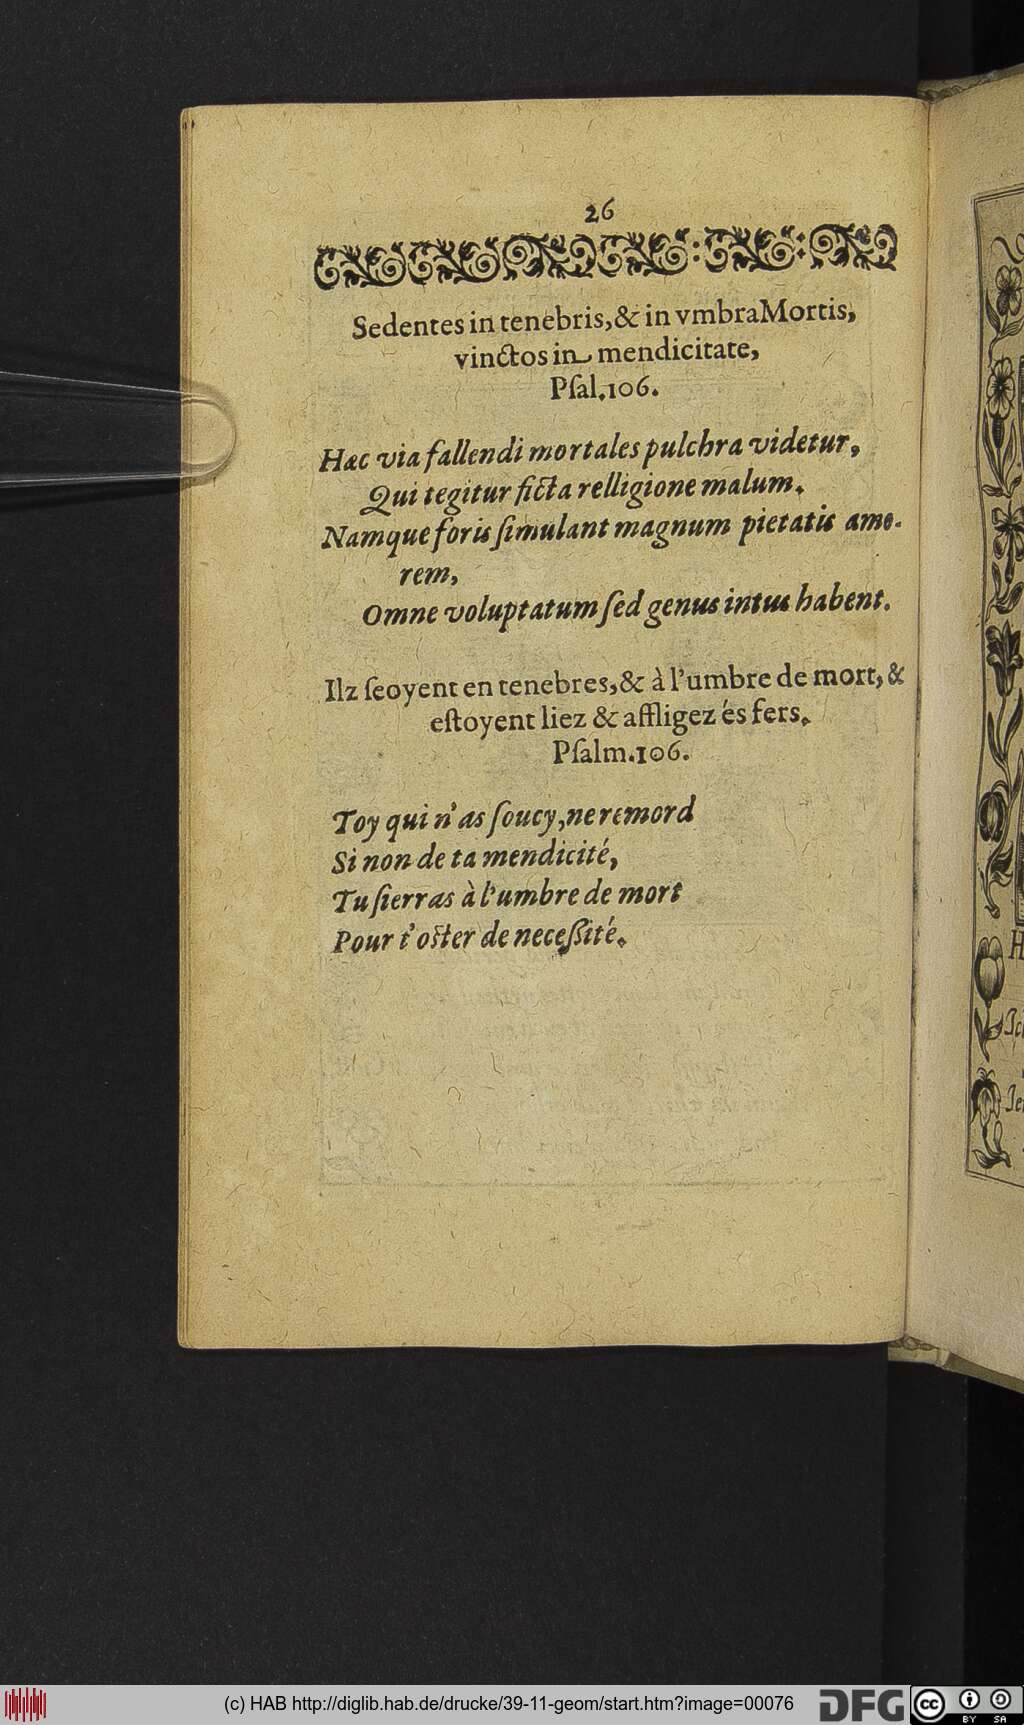 26
Sedentes in tenebris, & in vmbra Mortis,
vinctos in mendicitate,
Pſal. 106.
Hæc via fallendi mortales pulchra videtur,
Qui tegitur ficta relligione malum.
Namque foris ſimulant magnum pietatis amo-
rem,
Omne voluptatum ſed genus intus habent.
Ilz ſeoyent en tenebres, & à l'umbre de mort, &
eſtoyent liez & affligez és fers.
Pſalm. 106.
Toy qui n'as ſoucy, ne remord
Si non de ta mendicité,
Tu ſierras à l'umbre de mort
Pour t'oſter de neceſſité.
H
Ich
Je
(c) HAB http://diglib.hab.de/drucke/39-11-geom/start.htm?image=00076
DFG
cc
BY SA